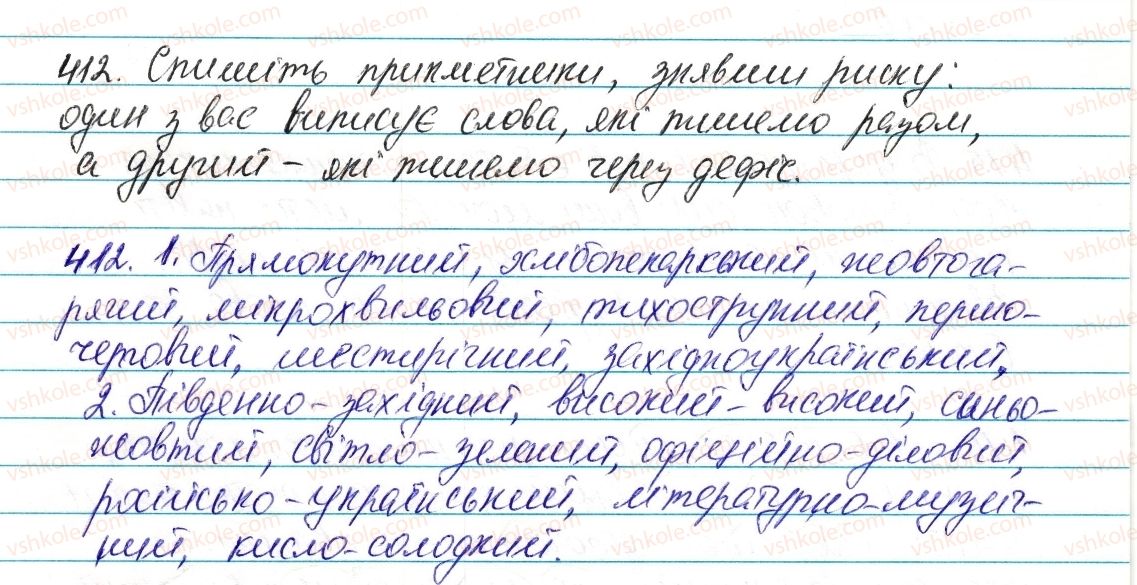 412. Спишіть прикметники, знявши риску:
один з вас виписує слова, які пишемо разом,
а другий – які пишемо через дефіс.
412. 1. Прямокутний, хлібопекарський, жовтога-
рячий, мікрохвильовий, тихострунний, першо-
чертовий, шестирічний, західноукраїнський.
2. Південно-західний, високий-високий, синьо-
жовтий, світло-зелений, офіційно-діловий,
російсько-український, літературно-музич-
ний, кисло-солодкий.